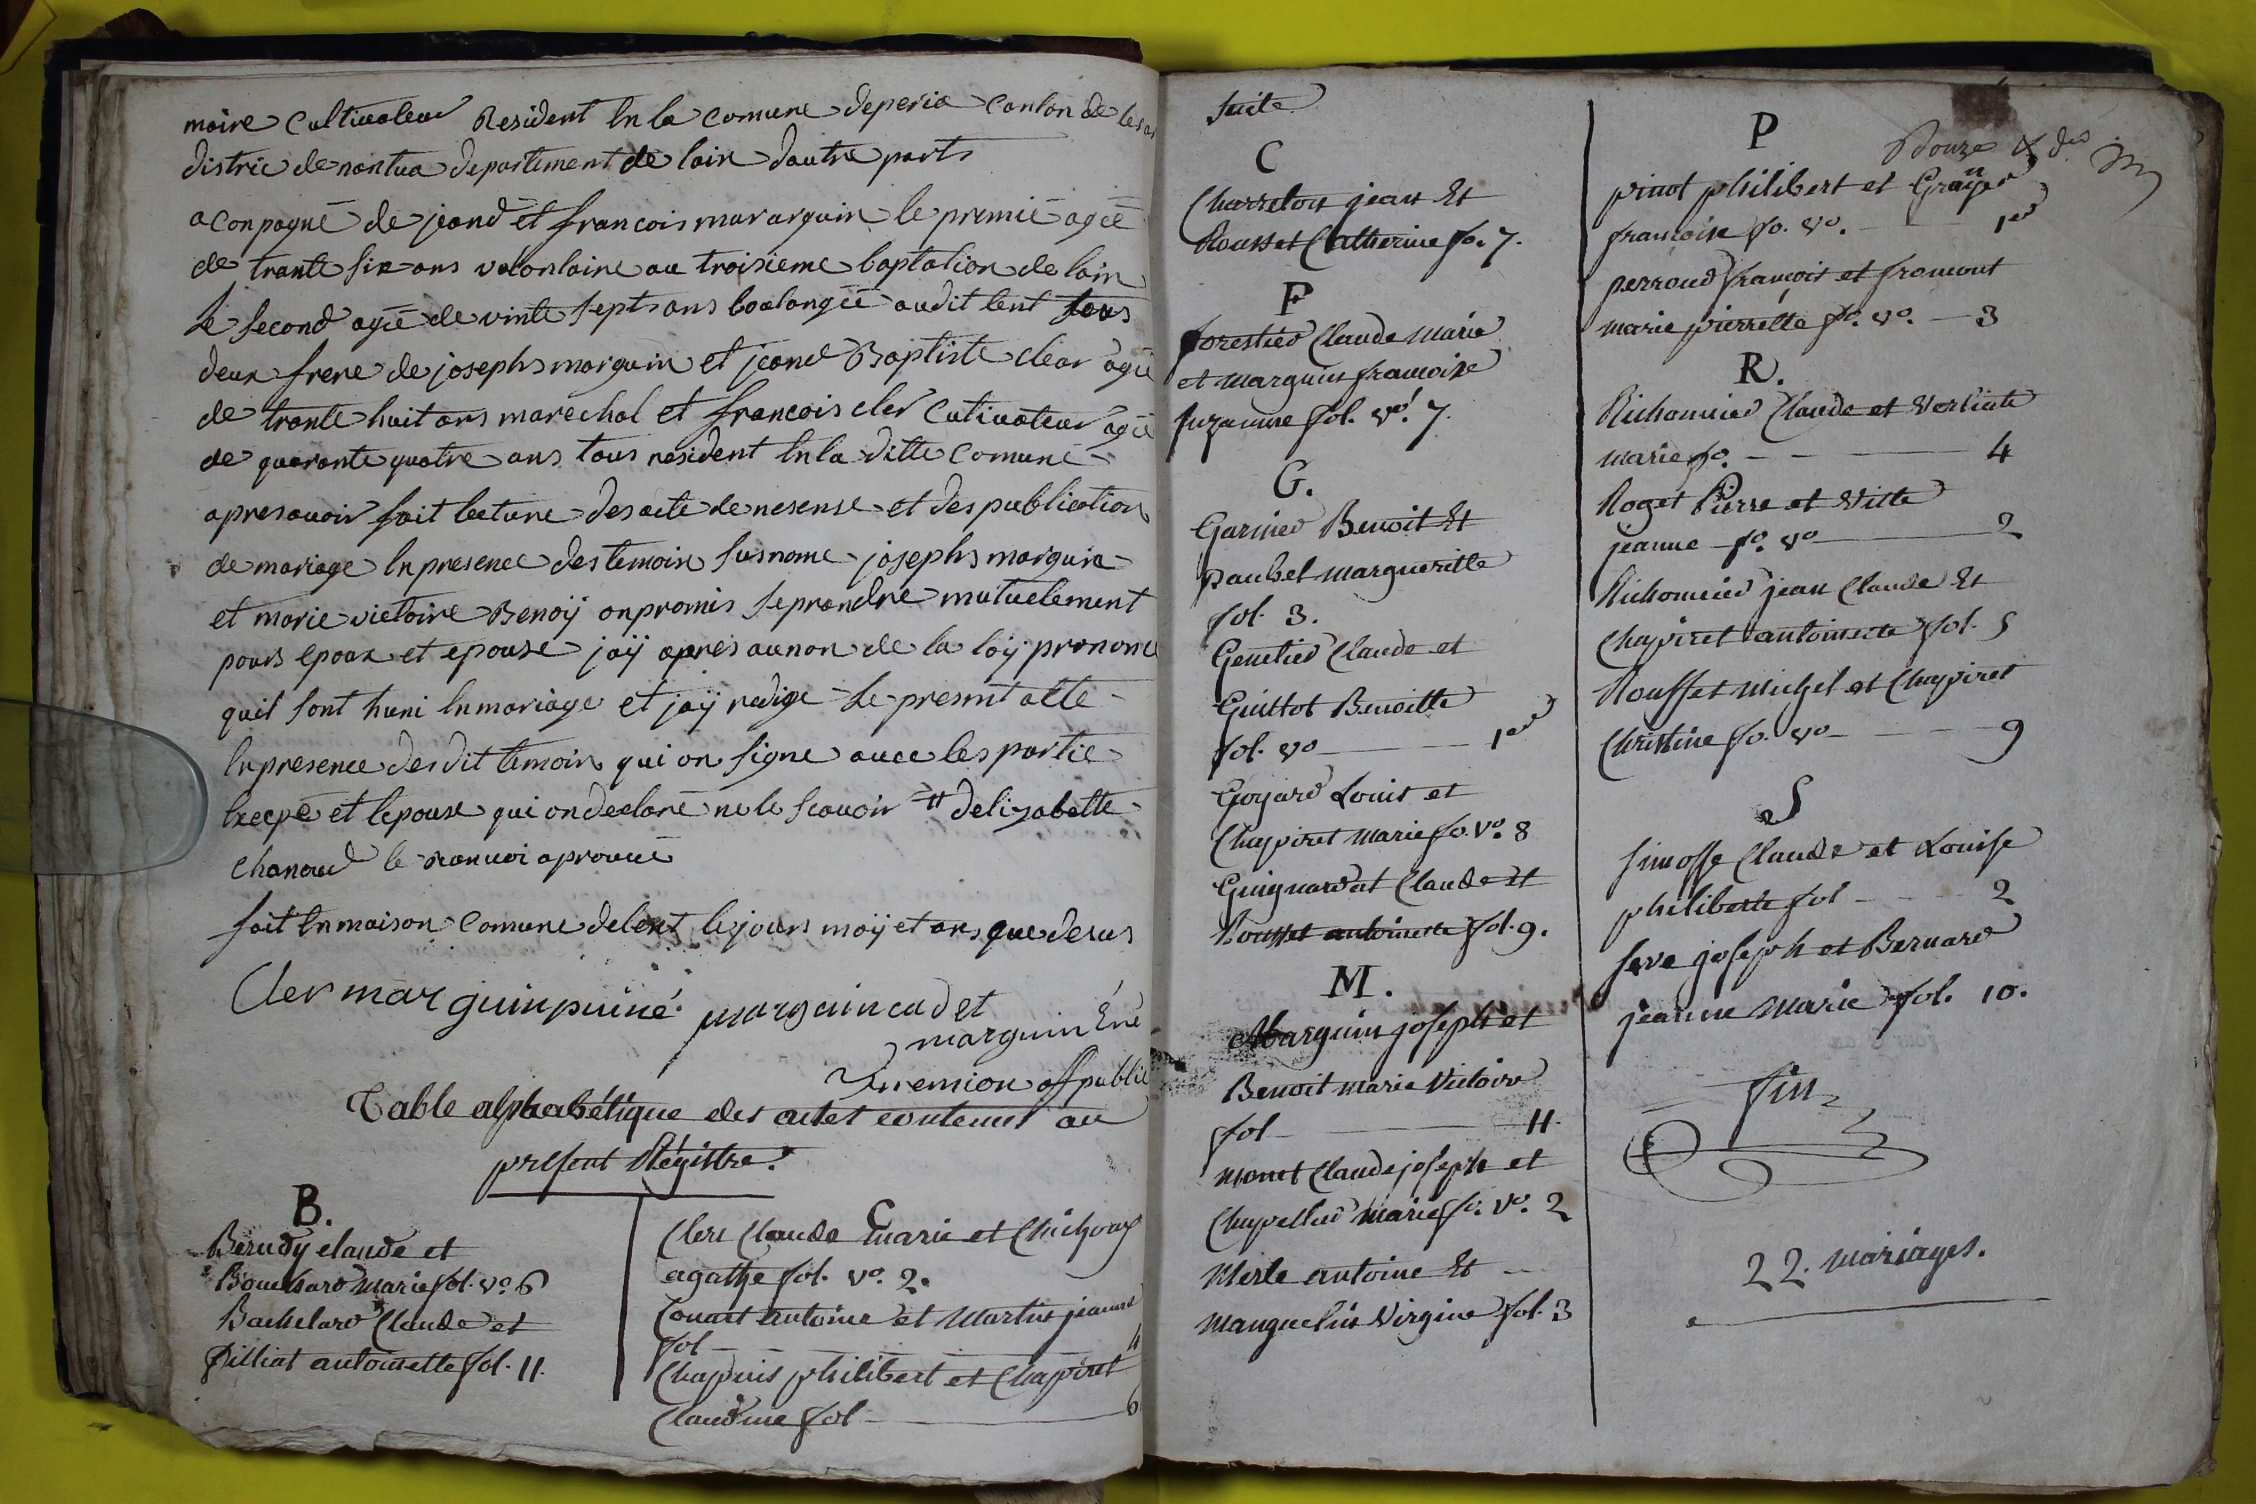 moire cultivateur Resident En la comune de peria canton de
distric de nantua departement de lain dautre parts
aconpagné de jeand et francois mararguin le premié agée
de trante six ans volontaire au troisieme baptalion de lain
Le second agée de vinte septs ans boulangée audit lent tous
deux frere de josephs marguin et jeand Baptiste clear agée
de trante huit ans marechal et francois cler cutivateur agée
de quarante quatre ans tous resident En la ditte comune
apres avoir fait lecture des acte de nesense et des publication
de mariage En presence des temoin susnome josephs marguin
et marie victoire Benoÿ on promis se prandre mutuelement
pours epoux et epouse jaÿ apres aunon de la loÿ prononce
quil sont huni En mariage et jaÿ redige le present acte
En presence des dit temoin qui on signe avec les partie
Excepé et lepouse qui on declaré ne le scavoir # delizabette
chanoud le ranvoi aprouvé
fait En maison comune delent le jours moÿ et ans que desus
Cler marguin puiné marguin cadet
marguin Ené
off public
Table alphabétique des actes contenus au
présent Régistre.
B.
Berudy claude et
Bouchard Marie fol. vo. 6
Bachelard Claude et
Pilliat antoinette fol. 11.
C
Clere Claude Marie et Chichoux
agathe fol. vo. 2.
Couart antoine et Martin jeanne
fol 4
Chapuis philibert et Chapiret
Claudine fol 6
Suite
C
Charreton jean Et
Rousset Catherine fo. 7.
F
forestier Claude Marie
et Marguin francoise
Suzanne fol. vo. 7.
G.
Garnier Benoit Et
Paubel Margueritte
fol. 3.
Genetier Claude et
Guittot Benoitte
fol. vo 1er
Goyard Louis et
Chapiret Marie fo. vo. 8
Guignardat Claude et
Rousset antoinette fol. 9.
M.
Marguin joseph et
Benoit marie Victoire
fol 11.
Monet Claude joseph et
Chapellier Marie fo. vo. 2
Merle antoine Et
Manguelin Virgine fol. 3
P
Douze &
pinot philibert et
francoise fo. vo. 1er
perroud francois et fromont
marie pierrette fo. vo. 3
R.
Richomier Claude et Verliate
Marie fo. 4
Roget Pierre et Vitte
jeanne fo. vo 2
Richomier jean Claude Et
Chapiret antoinette fol. 5
Rousset Michel et Chapiret
Christine fo. vo 9
S
Simosse Claude et Louise
philiberte fol 2
Seve joseph et Bernard
jeanne Marie fol. 10.
fin
22. Mariages.